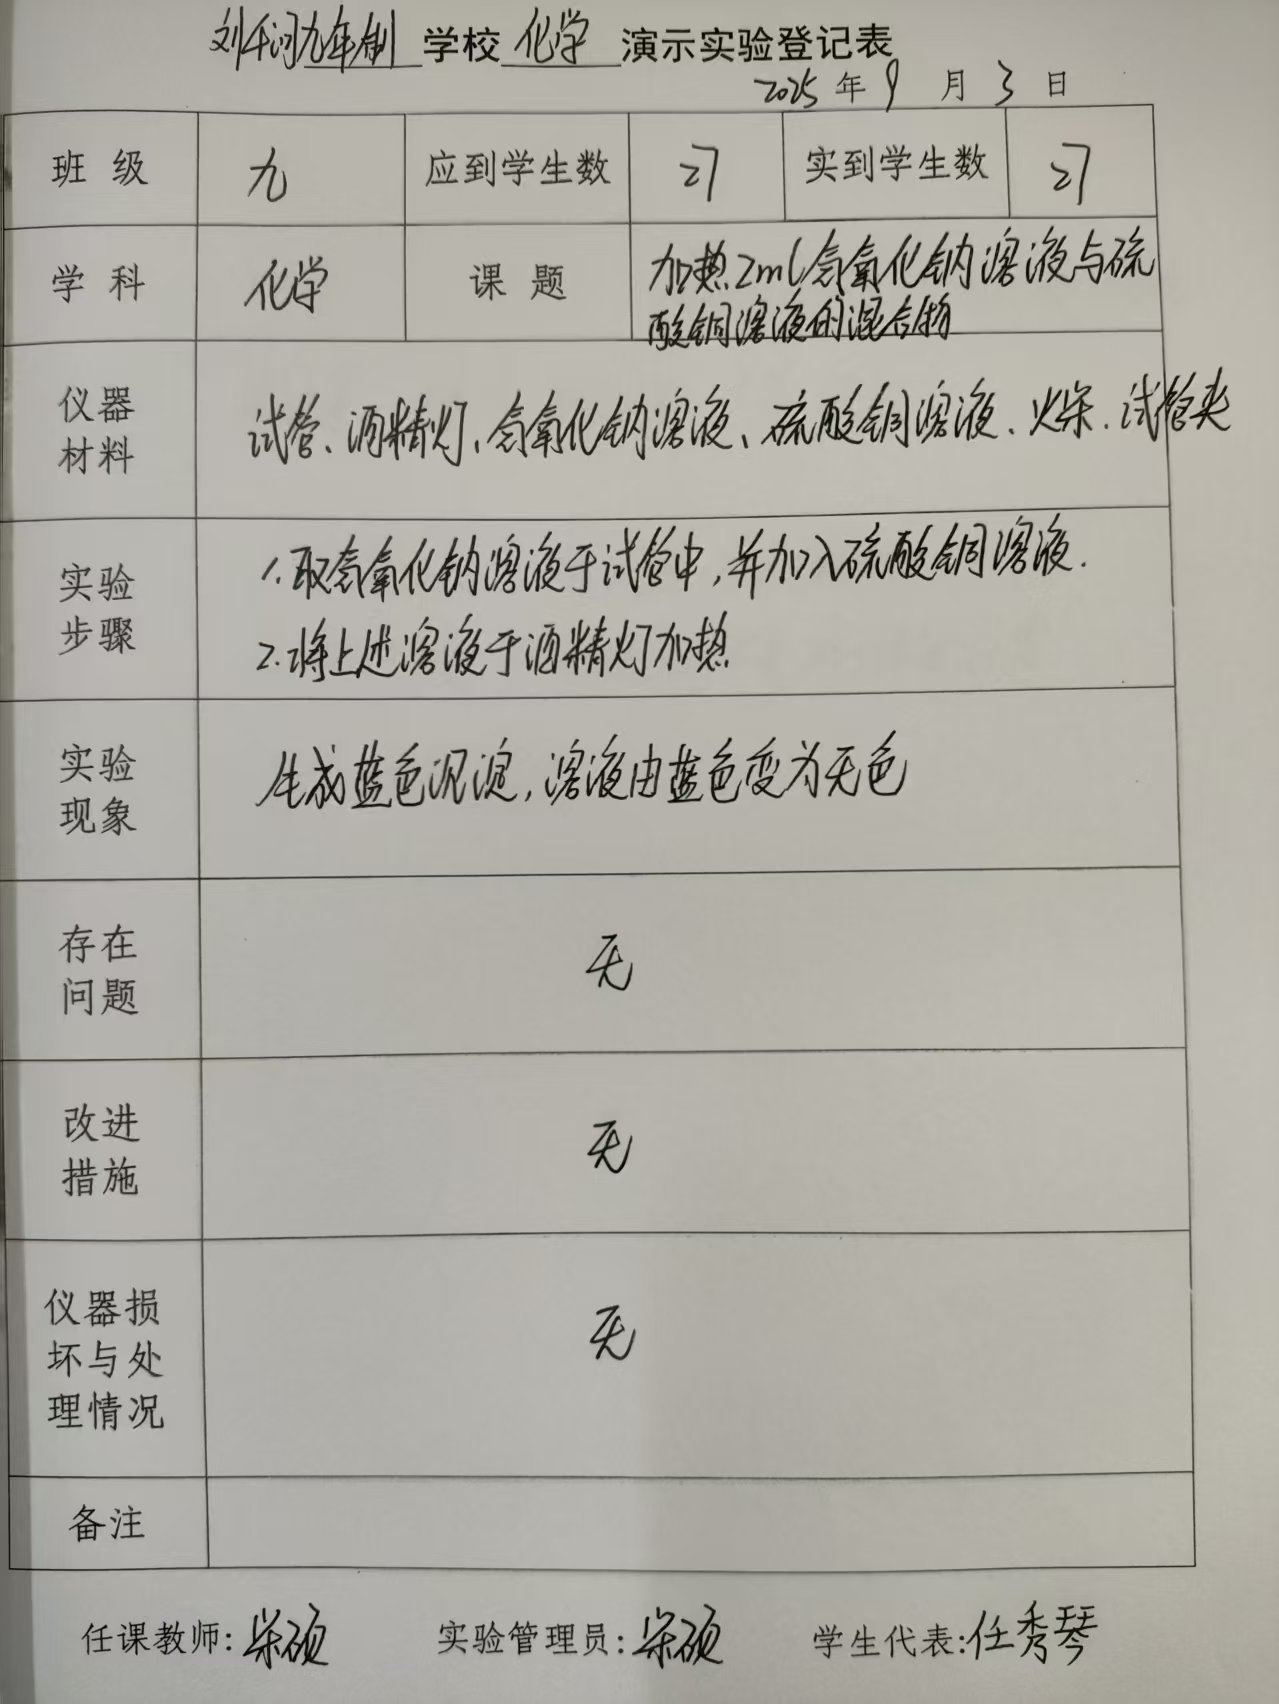 刘千河九年制学校 化学 演示实验登记表
2025年9月3日
班级 九 应到学生数 27 实到学生数 27
学科 化学 课题 加热2ml氢氧化钠溶液与硫
酸铜溶液的混合物
仪器
材料
试管、酒精灯、氢氧化钠溶液、硫酸铜溶液、火柴、试管夹
实验
步骤
1.取氢氧化钠溶液于试管中,并加入硫酸铜溶液.
2.将上述溶液于酒精灯加热
实验
现象
生成蓝色沉淀,溶液由蓝色变为无色
存在
问题
无
改进
措施
无
仪器损
坏与处
理情况
无
备注
任课教师: 宋硕 实验管理员: 宋硕 学生代表:任秀琴